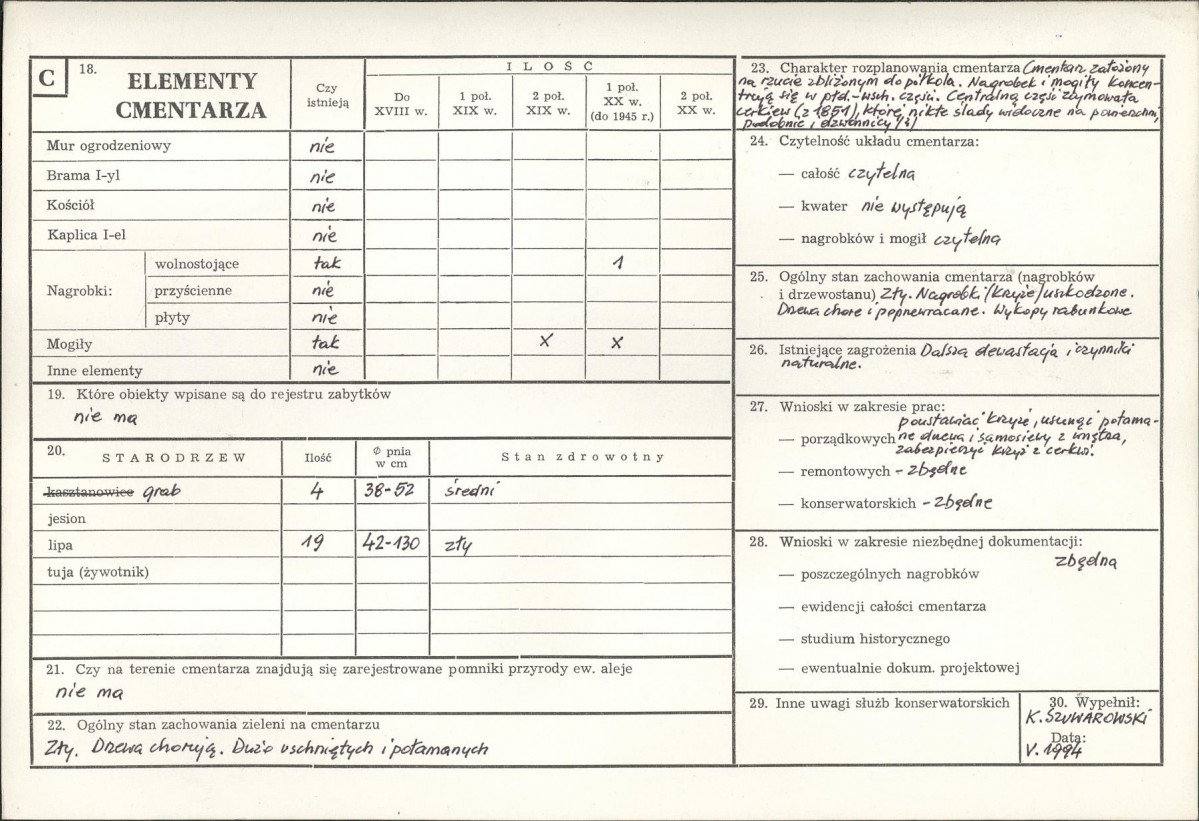 C
18. ELEMENTY
CMENTARZA
Czy
istnieją
ILOŚĆ
Do
XVIII w.
1 poł.
XIX w.
2 poł.
XIX w.
1 poł.
XX w.
(do 1945 r.)
2 poł.
XX w.
Mur ogrodzeniowy nie
Brama I-yl nie
Kościół nie
Kaplica I-el nie
Nagrobki:
wolnostojące tak 1
przyścienne nie
płyty nie
Mogiły tak X X
Inne elementy nie
19. Które obiekty wpisane są do rejestru zabytków
nie ma
20. STARODRZEW Ilość Ø pnia
w cm Stan zdrowotny
kasztanowiec grab 4 38-52 średni
jesion
lipa 19 42-130 zły
tuja (żywotnik)
21. Czy na terenie cmentarza znajdują się zarejestrowane pomniki przyrody ew. aleje
nie ma
22. Ogólny stan zachowania zieleni na cmentarzu
Zły. Drzewa chorują. Dużo uschniętych i połamanych
23. Charakter rozplanowania cmentarza Cmentarz założony
na rzucie zbliżonym do półkola. Nagrobek i mogiły koncen-
trują się w płd.-wsch. części. Centralną część zajmowała
cerkiew (z 1851), której nikłe ślady widoczne na powierzchni,
podobnie i dzwonnicy (?)
24. Czytelność układu cmentarza:
— całość czytelna
— kwater nie występują
— nagrobków i mogił czytelna
25. Ogólny stan zachowania cmentarza (nagrobków
i drzewostanu) Zły. Nagrobki/krzyże/uszkodzone.
Drzewa chore i poprzewracane. Wykopy rabunkowe
26. Istniejące zagrożenia Dalsza dewastacja i czynniki
naturalne.
27. Wnioski w zakresie prac:
poustawiać krzyże, usunąć połama-
— porządkowych ne drzewa i samosiewy z wnętrza,
zabezpieczyć krzyż z cerkwi.
— remontowych - zbędne
— konserwatorskich - zbędne
28. Wnioski w zakresie niezbędnej dokumentacji:
zbędna
— poszczególnych nagrobków
— ewidencji całości cmentarza
— studium historycznego
— ewentualnie dokum. projektowej
29. Inne uwagi służb konserwatorskich
30. Wypełnił:
K. SZUWAROWSKI
Data:
V. 1994